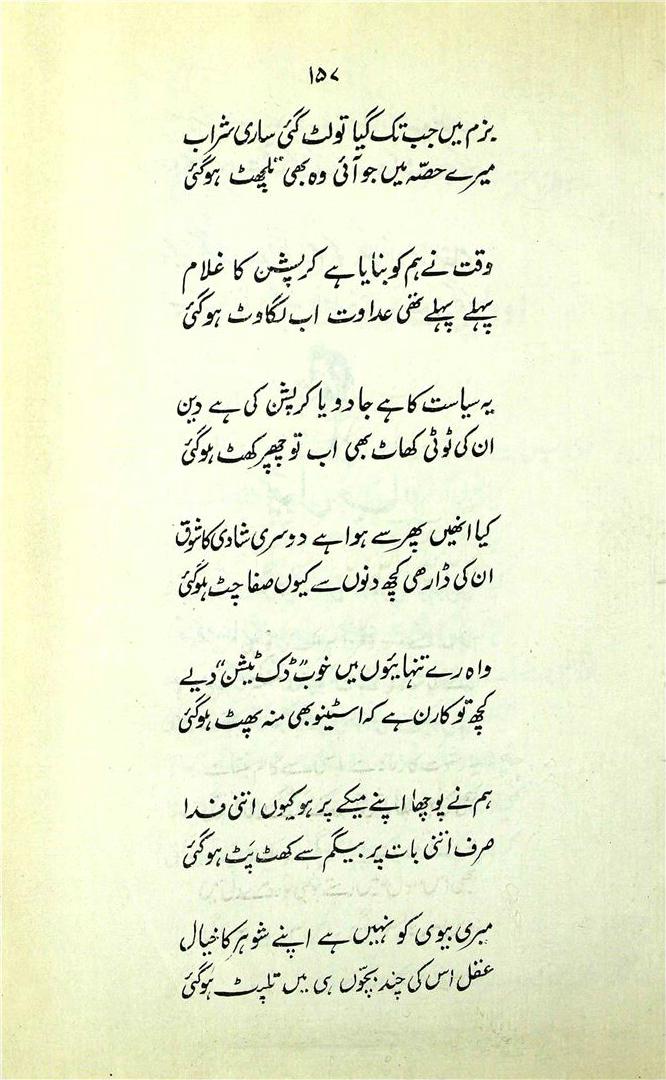 ۱۵۷
بزم میں جب تک گیا تو لٹ گئی ساری شراب
میرے حصّہ میں جو آئی وہ بھی "تلچھٹ ہوگئی
وقت نے ہم کو بنایا ہے کرپشن کا غلام
پہلے پہلے تھی عداوت اب لگاوٹ ہوگئی
یہ سیاست کا ہے جادو یا کرپشن کی ہے دین
ان کی ٹوٹی کھاٹ بھی اب تو چھپر کھٹ ہوگئی
کیا انھیں پھر سے ہوا ہے دوسری شادی کا شوق
ان کی ڈارھی کچھ دنوں سے کیوں صفا چٹ ہوگئی
واہ رے تنہایوں میں خوب "ڈک ٹیشن" دیے
کچھ تو کارن ہے کہ اسٹینو بھی منہ پھٹ ہوگئی
ہم نے پوچھا اپنے میکے پر ہو کیوں اتنی فدا
صرف اتنی بات پر بیگم سے کھٹ پَٹ ہوگئی
میری بیوی کو نہیں ہے اپنے شوہر کا خیال
عقل اس کی چند بچّوں ہی میں تلپٹ ہوگئی